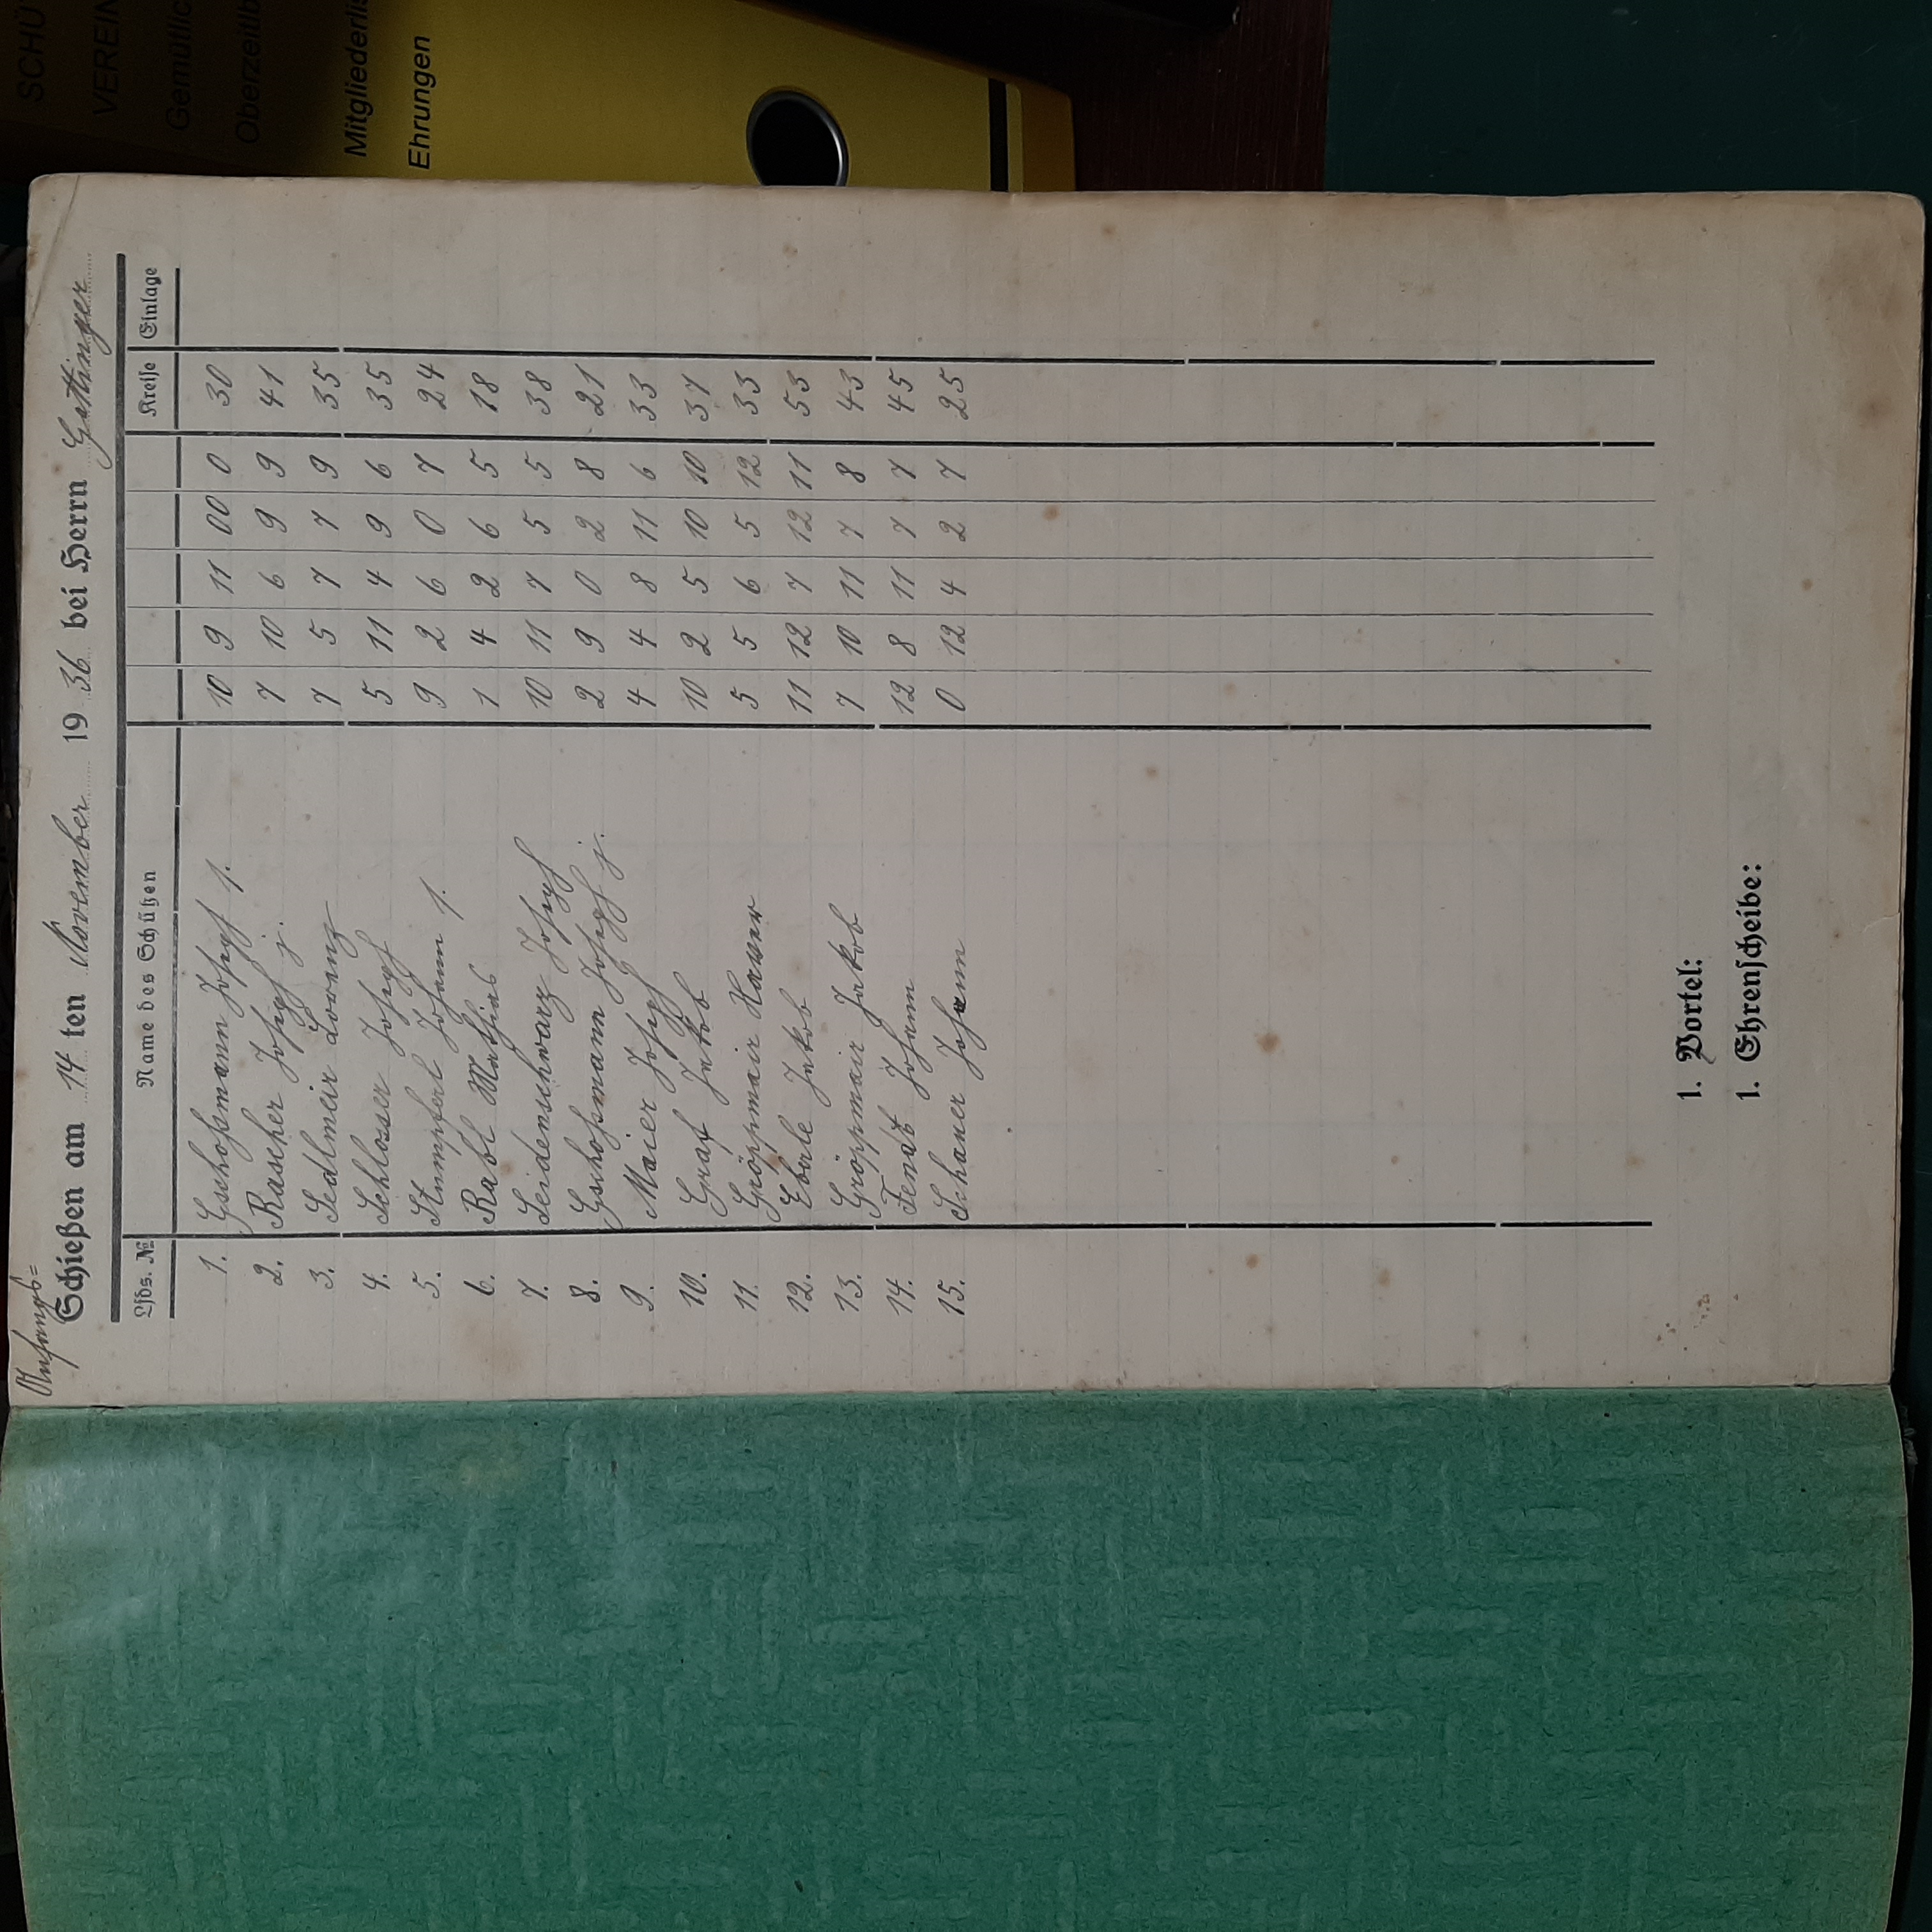 SCHÜ
VEREIN
Gemütlic
Oberzeitlb
Mitgliederlis
Ehrungen
Anfangs=
Schießen am 14 ten November 19 36 bei Herrn Gattinger
Lfds. № Name des Schützen Kreise Einlage
1. Gschoßmann Josef 1. 10 9 11 00 0 30
2. Rascher Josef j. 7 10 6 9 9 41
3. Sedlmeir Lorenz 7 5 7 7 9 35
4. Schlosser Josef 5 11 4 9 6 35
5. Stumpferl Johann 1. 9 2 6 0 7 24
6. Rabl Mathias 1 4 2 6 5 18
7. Seidenschwarz Josef 10 11 7 5 5 38
8. Gschoßmann Josef j. 2 9 0 2 8 21
9. Maier Josef 4 4 8 11 6 33
10. Graf Jakob 10 2 5 10 10 37
11. Gröppmair Xaver 5 5 6 5 12 33
12. Eberle Jakob 11 12 7 12 11 53
13. Gröppmair Jakob 7 10 11 7 8 43
14. Fendt Johann 12 8 11 7 7 45
15. Schauer Johann 0 12 4 2 7 25
1. Vortel:
1. Ehrenscheibe: